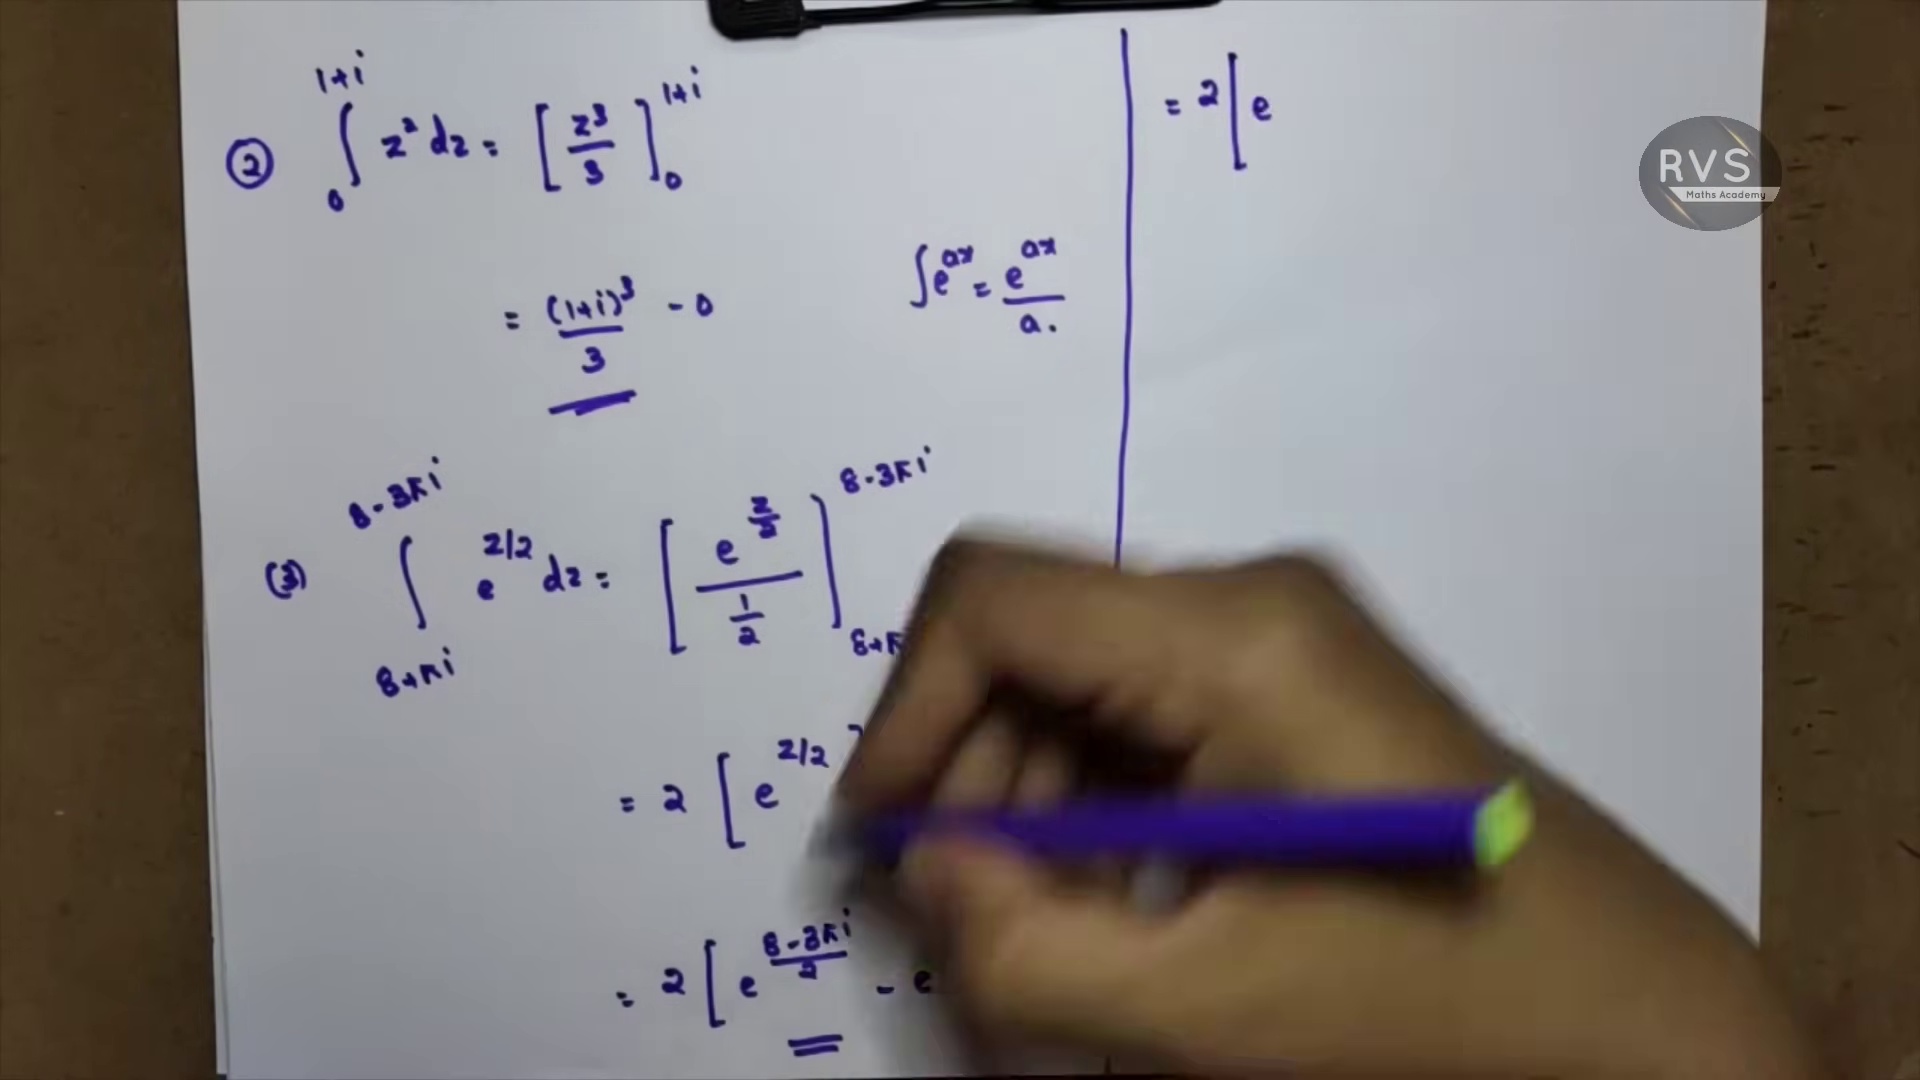 ② ∫₀^{1+i} z² dz = [z³/3]₀^{1+i}
= (1+i)³/3 - 0
∫e^{ax} = e^{ax}/a.
(3) ∫_{8+πi}^{8-3πi} e^{z/2} dz = [e^{z/2}/(1/2)]_{8+π}^{8-3πi}
= 2 [e^{z/2}]
= 2 [e^{(8-3πi)/2} - e
= 2 [e
RVS
Maths Academy